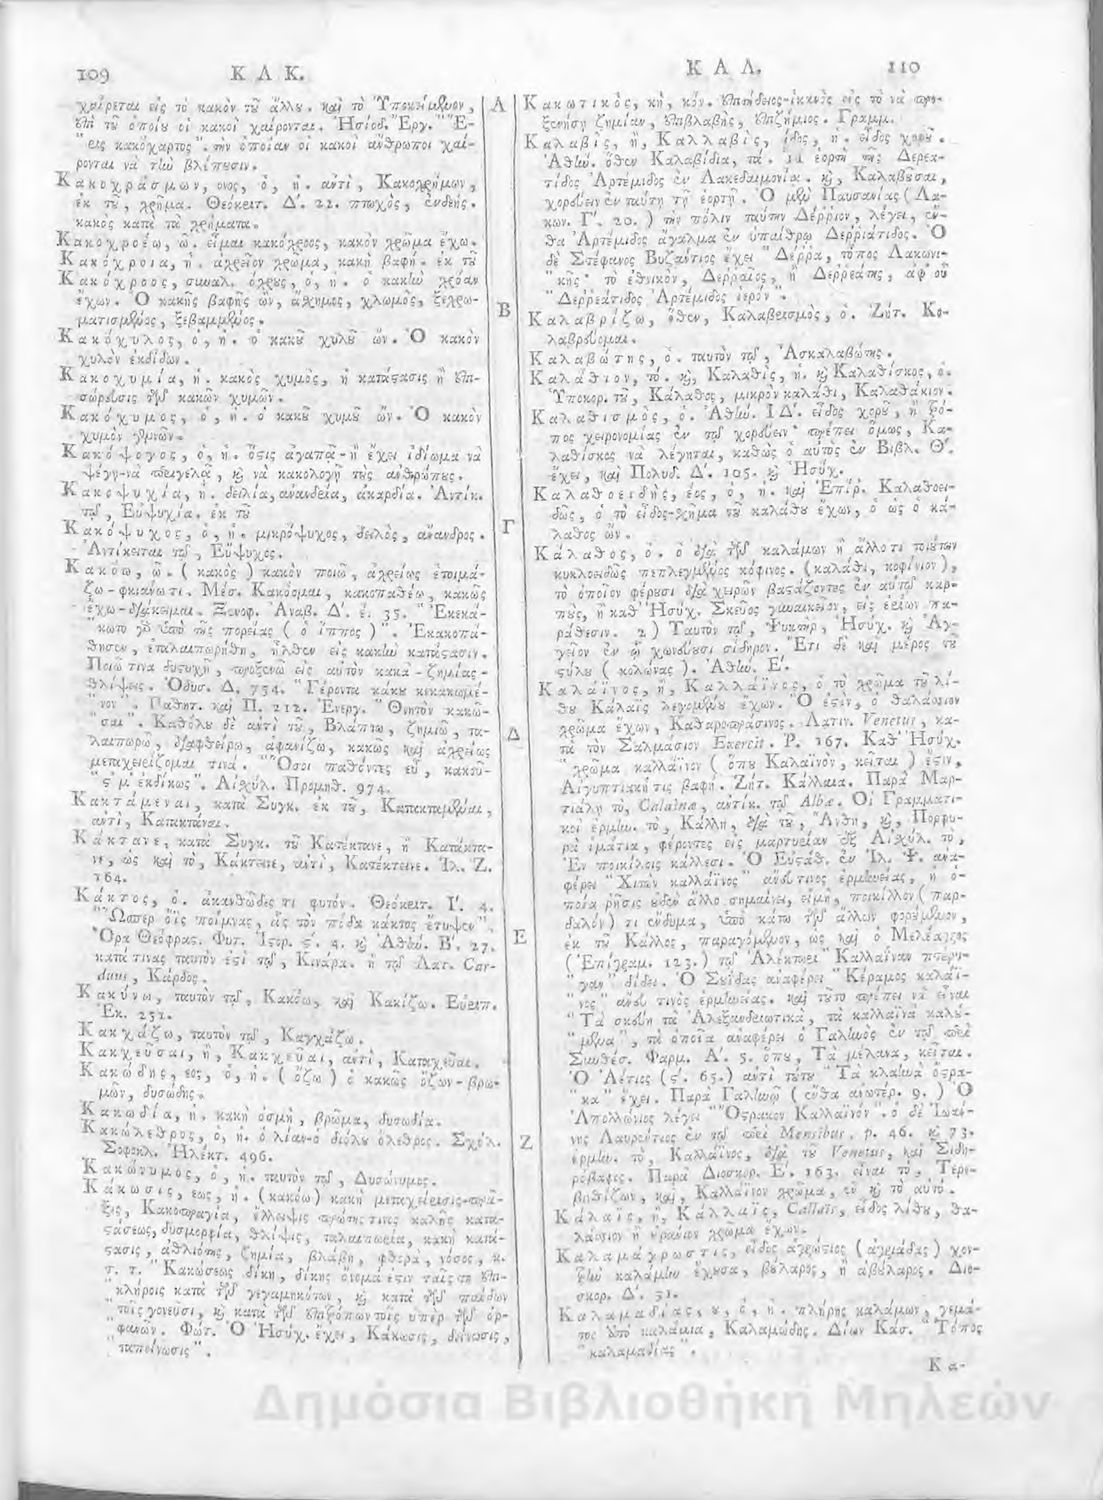 109 Κ Α Κ.
χαίρεται εἰς τὸ κακὸν τοῦ ἄλλου. καὶ τὸ Ὑποκείμενον,
ἐπὶ τοῦ ὁποίου οἱ κακοὶ χαίρονται. Ἡσίοδ. Ἔργ. "Ἔ-
"ρις κακόχαρτος". τὴν ὁποίαν οἱ κακοὶ ἄνθρωποι χαί-
ρονται νὰ τὴν βλέπουσιν.
Κακοχράσμων, ονος, ὁ, ἡ. ἀντὶ, Κακοχρήμων,
ἐκ τοῦ, χρῆμα. Θεόκριτ. Δ'. 22. πτωχὸς, ἐνδεής.
κακὸς κατὰ τὰ χρήματα.
Κακοχροέω, ῶ. εἶμαι κακόχροος, κακὸν χρῶμα ἔχω.
Κακόχροια, ἡ. ἀχρεῖον χρῶμα, κακὴ βαφή. ἐκ τοῦ
Κακόχροος, συναλ. όχρους, ὁ, ἡ. ὁ κακὴν χρόαν
ἔχων. Ὁ κακῆς βαφῆς ὢν, ἄσχημος, χλωμὸς, ξεχρω-
ματισμένος, ξεβαμμένος.
Κακόχυλος, ὁ, ἡ. ὁ κακοῦ χυλοῦ ὤν. Ὁ κακὸν
χυλὸν ἐκδίδων.
Κακοχυμία, ἡ. κακὸς χυμὸς, ἡ κατάστασις ἢ ἐπι-
σώρευσις τῶν κακῶν χυμῶν.
Κακόχυμος, ὁ, ἡ. ὁ κακοῦ χυμοῦ ὤν. Ὁ κακὸν
χυμὸν γεννῶν.
Κακόψογος, ὁ, ἡ. ὅστις ἀγαπᾷ-ἢ ἔχει ἰδίωμα νὰ
ψέγῃ-νὰ περιγελᾷ, καὶ νὰ κακολογῇ τοὺς ἀνθρώπους.
Κακοψυχία, ἡ. δειλία, ἀνανδρεία, ἀκαρδία. Ἀντίκ.
τῷ, Εὐψυχία. ἐκ τοῦ
Κακόψυχος, ὁ, ἡ. μικρόψυχος, δειλὸς, ἄνανδρος.
Ἀντίκειται τῷ, Εὔψυχος.
Κακόω, ῶ. ( κακὸς ) κακὸν ποιῶ, ἀχρείως ἑτοιμά-
ζω-φκιάνω τι. Μέσ. Κακόομαι, κακοπαθέω, κακῶς
ἔχω-διάκειμαι. Ξενοφ. Ἀναβ. Δ'. ἐ. 35. "Ἐκεκά-
"κωτο γὰρ ὑπὸ τῆς πορείας ( ὁ ἵππος )". Ἐκακοπά-
θησεν, ἐταλαιπωρήθη, ἦλθεν εἰς κακὴν κατάστασιν.
Ποιῶ τινα δυστυχῆ, προξενῶ εἰς αὐτὸν κακὰ-ζημίας-
θλίψεις. Ὀδυσ. Δ. 754. "Γέροντα κάκου κεκακωμέ-
"νον". Παθητ. καὶ Π. 212. Ἐνεργ. "Θνητὸν κακῶ-
"σαι". Καθόλου δὲ ἀντὶ τοῦ, Βλάπτω, ζημιῶ, τα-
λαιπωρῶ, διαφθείρω, ἀφανίζω, κακῶς καὶ ἀχρείως
μεταχειρίζομαι τινά. "Ὅσοι παθόντες εὖ, κακοῦ-
"σι μ' ἐκδίκως". Αἰσχύλ. Προμηθ. 974.
Κακτάμεναι, κατὰ Συγκ. ἐκ τοῦ, Κατακταμέναι,
ἀντὶ, Κατακτάναι.
Κάκτανε, κατὰ Συγκ. τοῦ Κατέκτανε, ἢ Κατάκτα-
νε, ὡς καὶ τὸ, Κάκτεινε, ἀντὶ, Κατέκτεινε. Ἰλ. Ζ.
164.
Κάκτος, ὁ. ἀκανθῶδές τι φυτόν. Θεόκριτ. Ι'. 4.
"Ὥσπερ ὄϊς ποίμνας, ἇς τὸν πόδα κάκτος ἔτυψεν".
Ὅρα Θεόφρασ. Φυτ. Ἱστορ. ς'. 4. καὶ Ἀθήν. Β'. 27.
κατά τινας ταυτὸν ἐστὶ τῷ, Κινάρα. ἢ τῷ Λατ. Car-
duus, Κάρδος.
Κακύνω, ταυτὸν τῷ, Κακόω, καὶ Κακίζω. Εὐριπ.
Ἑκ. 251.
Κακχάζω, ταυτὸν τῷ, Καγχάζω.
Κακχεῦσαι, ἢ, Κακχεῦαι, ἀντὶ, Καταχεῦαι.
Κακώδης, εος, ὁ, ἡ. ( ὄζω ) ὁ κακῶς ὄζων-βρω-
μῶν, δυσώδης.
Κακωδία, ἡ. κακὴ ὀσμὴ, βρῶμα, δυσωδία.
Κακώλεθρος, ὁ, ἡ. ὁ λίαν-ὁ διόλου ὄλεθρος. Σχόλ.
Σοφοκλ. Ἠλέκτ. 496.
Κακώνυμος, ὁ, ἡ. ταυτὸν τῷ, Δυσώνυμος.
Κάκωσις, εως, ἡ. (κακόω) κακὴ μεταχείρισις-πρᾶ-
ξις, Κακοπραγία, ἔλλειψις πρώτης τινος καλῆς κατα-
στάσεως, δυσμορφία, θλίψις, ταλαιπωρία, κακὴ κατά-
στασις, ἀθλιότης, ζημία, βλάβη, φθορὰ, νόσος, κ.
τ. τ. "Κακώσεως δίκη, δίκης ὄνομά ἐστιν ταῖς τε ἐπι-
"κλήροις κατὰ τῶν γεγαμηκότων, καὶ κατὰ τῶν παίδων
"τοῖς γονεῦσι, καὶ κατὰ τῶν ἐπιτρόπων τοῖς ὑπὲρ τῶν ὀρ-
"φανῶν. Φώτ. Ὁ Ἡσύχ. ἔχει, Κάκωσις, δείνωσις,
ταπείνωσις".
Α
Β
Γ
Δ
Ε
Ζ
Κ Α Λ. 110
Κακωτικὸς, κὴ, κόν. ἐπιτήδειος-ἱκανὸς εἰς τὸ νὰ προ-
ξενήσῃ ζημίαν, ἐπιβλαβὴς, ἐπιζήμιος. Γραμμ.
Καλαβὶς, ἢ, Καλλαβὶς, ίδος, ἡ. εἶδος χοροῦ.
Ἀθήν. ὅθεν Καλαβίδια, τά. ἡ ἑορτὴ τῆς Δερεα-
τίδος Ἀρτέμιδος ἐν Λακεδαιμονίᾳ. καὶ, Καλαβοῦσαι,
χορεύειν ἐν ταύτῃ τῇ ἑορτῇ. Ὁ μὲν Παυσανίας (Λα-
κων. Γ'. 20.) τὴν πόλιν ταύτην Δέρριον, λέγει, ἔν-
θα Ἀρτέμιδος ἄγαλμα ἐν ὑπαίθρῳ Δερριάτιδος. Ὁ
δὲ Στέφανος Βυζάντιος ἔχει "Δέρρα, τόπος Λακωνι-
"κῆς· τὸ ἐθνικὸν, Δερραῖος, ἢ Δερρεάτης, ἀφ' οὗ
"Δερρεάτιδος Ἀρτέμιδος ἱερόν".
Καλαβρίζω, ὅθεν, Καλαβρισμὸς, ὁ. Ζήτ. Κο-
λαβρεύομαι.
Καλαβώτης, ὁ. ταυτὸν τῷ, Ἀσκαλαβώτης.
Καλάθιον, τό. καὶ, Καλαθὶς, ἡ. καὶ Καλαθίσκος, ὁ.
Ὑποκορ. τοῦ, Κάλαθος, μικρὸν καλάθι, Καλαθάκιον.
Καλαθισμὸς, ὁ. Ἀθήν. ΙΔ'. εἶδος χοροῦ, ἢ τρό-
πος χειρονομίας ἐν τῷ χορεύειν· πρέπει ὅμως, Κα-
λαθίσκος νὰ λέγηται, καθὼς ὁ αὐτὸς ἐν Βιβλ. Θ'.
ἔχει, καὶ Πολυδ. Δ'. 105. καὶ Ἡσύχ.
Καλαθοειδὴς, έος, ὁ, ἡ. καὶ Ἐπίρ. Καλαθοει-
δῶς, ὁ τὸ εἶδος-σχῆμα τοῦ καλάθου ἔχων, ὁ ὡς ὁ κά-
λαθος ὤν.
Κάλαθος, ὁ. ὁ διὰ τῶν καλάμων ἢ ἄλλο τι τοιοῦτον
κυκλοειδῶς πεπλεγμένος κόφινος. (καλάθι, κοφίνιον),
τὸ ὁποῖον φέρουσι διὰ χειρῶν βαστάζοντες ἐν αὐτῷ καρ-
πούς, ἢ καθ' Ἡσύχ. Σκεῦος γυναικεῖον, εἰς ἐρίων πα-
ράθεσιν. 2) Ταυτὸν τῷ, Ψυκτὴρ, Ἡσύχ. καὶ Ἀγ-
γεῖον ἐν ᾧ χωνεύουσι σίδηρον. Ἔτι δὲ καὶ μέρος τοῦ
στύλου ( κολώνας ). Ἀθήν. Ε'.
Καλάϊνος, ἢ, Καλλάϊνος, ὁ τὸ χρῶμα τοῦ λί-
θου Κάλαϊς λεγομένου ἔχων. Ὅ ἐστιν, ὁ θαλάσσιον
χρῶμα ἔχων, Καθαροπράσινος. Λατιν. Venetus, κα-
τὰ τὸν Σαλμάσιον Exercit. P. 167. Καθ' Ἡσύχ.
"χρῶμα καλλάϊνον ( ὅπου Καλαΐνον, κεῖται ) ἐστιν,
Αἰγυπτιακή τις βαφή. Ζήτ. Κάλλαια. Παρὰ Μαρ-
τιάλῃ τὸ, Calainæ, ἀντίκ. τῷ Albæ. Οἱ Γραμματι-
κοὶ ἑρμην. τὸ, Κάλλη, διὰ τοῦ, Ἄνθη, καὶ, Πορφυ-
ρᾶ ἱμάτια, φέροντες εἰς μαρτυρίαν ἐξ Αἰσχύλ. τὸ,
Ἐν ποικίλοις κάλλεσι. Ὁ Εὐστάθ. ἐν Ἰλ. Ψ. ἀνα-
φέρει "Χιτὼν καλλάϊνος" ἄνευ τινος ἑρμηνείας, ἡ ὁ-
ποία ῥῆσις οὐδὲν ἄλλο σημαίνει, εἰμὴ, ποικίλλον ( παρ-
δαλόν ) τι ἔνδυμα, ὑπὸ κάτω τῶν ἄλλων φορούμενον,
ἐκ τοῦ Κάλλος, παραγόμενον, ὡς καὶ ὁ Μελέαγρος
(Ἐπίγραμ. 123.) τῷ Ἀλέκτωρι "Καλλαΐναν πτέρυ-
"γαν" δίδει. Ὁ Σουΐδας ἀναφέρει "Κέραμος καλάϊ-
"νος" ἄνευ τινὸς ἑρμηνείας. καὶ τοῦτο πρέπει νὰ εἶναι
"Τὰ σκεύη τὰ Ἀλεξανδριωτικὰ, τὰ καλλαϊνὰ καλού-
"μενα", τὰ ὁποῖα ἀναφέρει ὁ Γαλῖνος ἐν τῷ περὶ
Συνθέσ. Φαρμ. Α'. 5. ὅπου, Τὰ μέλανα, κεῖται.
Ὁ Ἀέτιος (ς'. 65.) ἀντὶ τούτου "Τὰ κλαϊνὰ ὄστρα-
"κα" ἔχει. Παρὰ Γαλίνῳ ( ἔνθα ἀνωτέρ. 9. ) Ὁ
Ἀπολλώνιος λέγει "Ὄστρακον Καλλάϊνον". ὁ δὲ Ἰωάν-
νης Λαυρέντιος ἐν τῷ περὶ Mensibus. p. 46. καὶ 73.
ἑρμην. τὸ, Καλλάϊνος, διὰ τοῦ Venetus, καὶ Σιδη-
ρόβαφες. Παρὰ Διοσκορ. Ε'. 163. εἶναι τὸ, Τερε-
βινθίζων, καὶ, Καλλάϊνον χρῶμα, ἓν καὶ τὸ αὐτό.
Κάλαϊς, ἢ, Κάλλαϊς, Callais, εἶδος λίθου, θα-
λάσσιον ἢ οὐράνιον χρῶμα ἔχων.
Καλαμάγρωστις, εἶδος ἀγρώστιος ( ἀγριάδας ) χον-
τρὴν καλάμην ἔχουσα, βόλαρος, ἢ ἀβόλαρος. Διο-
σκορ. Δ'. 31.
Καλαμαδίας, ου, ὁ, ἡ. πλήρης καλάμων, γεμά-
τος ἀπὸ καλάμια, Καλαμώδης. Δίων Κάσ. "Τόπος
"καλαμαδίας".
Κα-
Δημόσια Βιβλιοθήκη Μηλεών